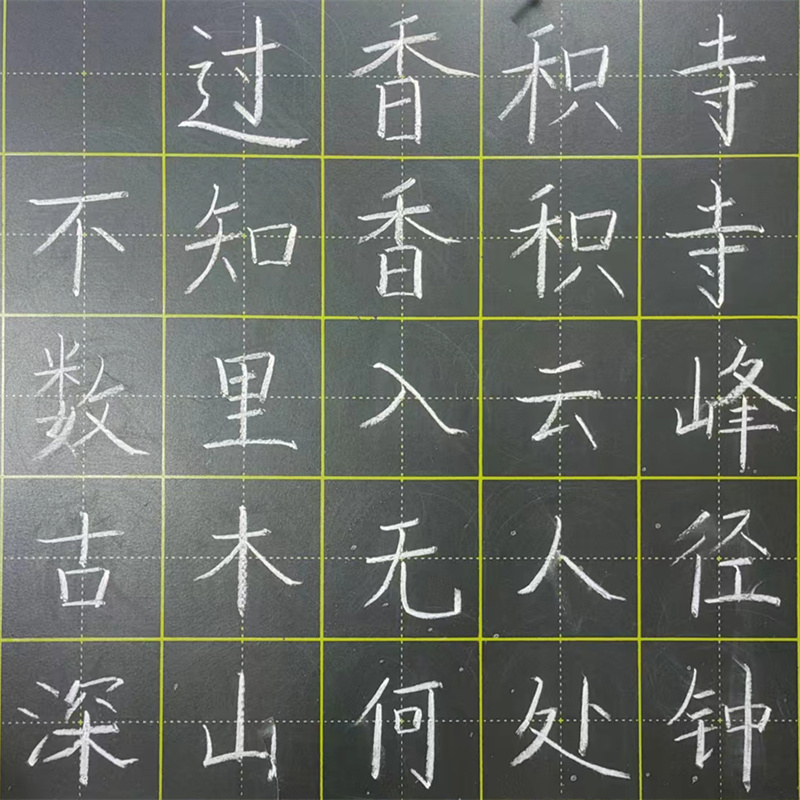 过香积寺
不知香积寺
数里入云峰
古木无人径
深山何处钟